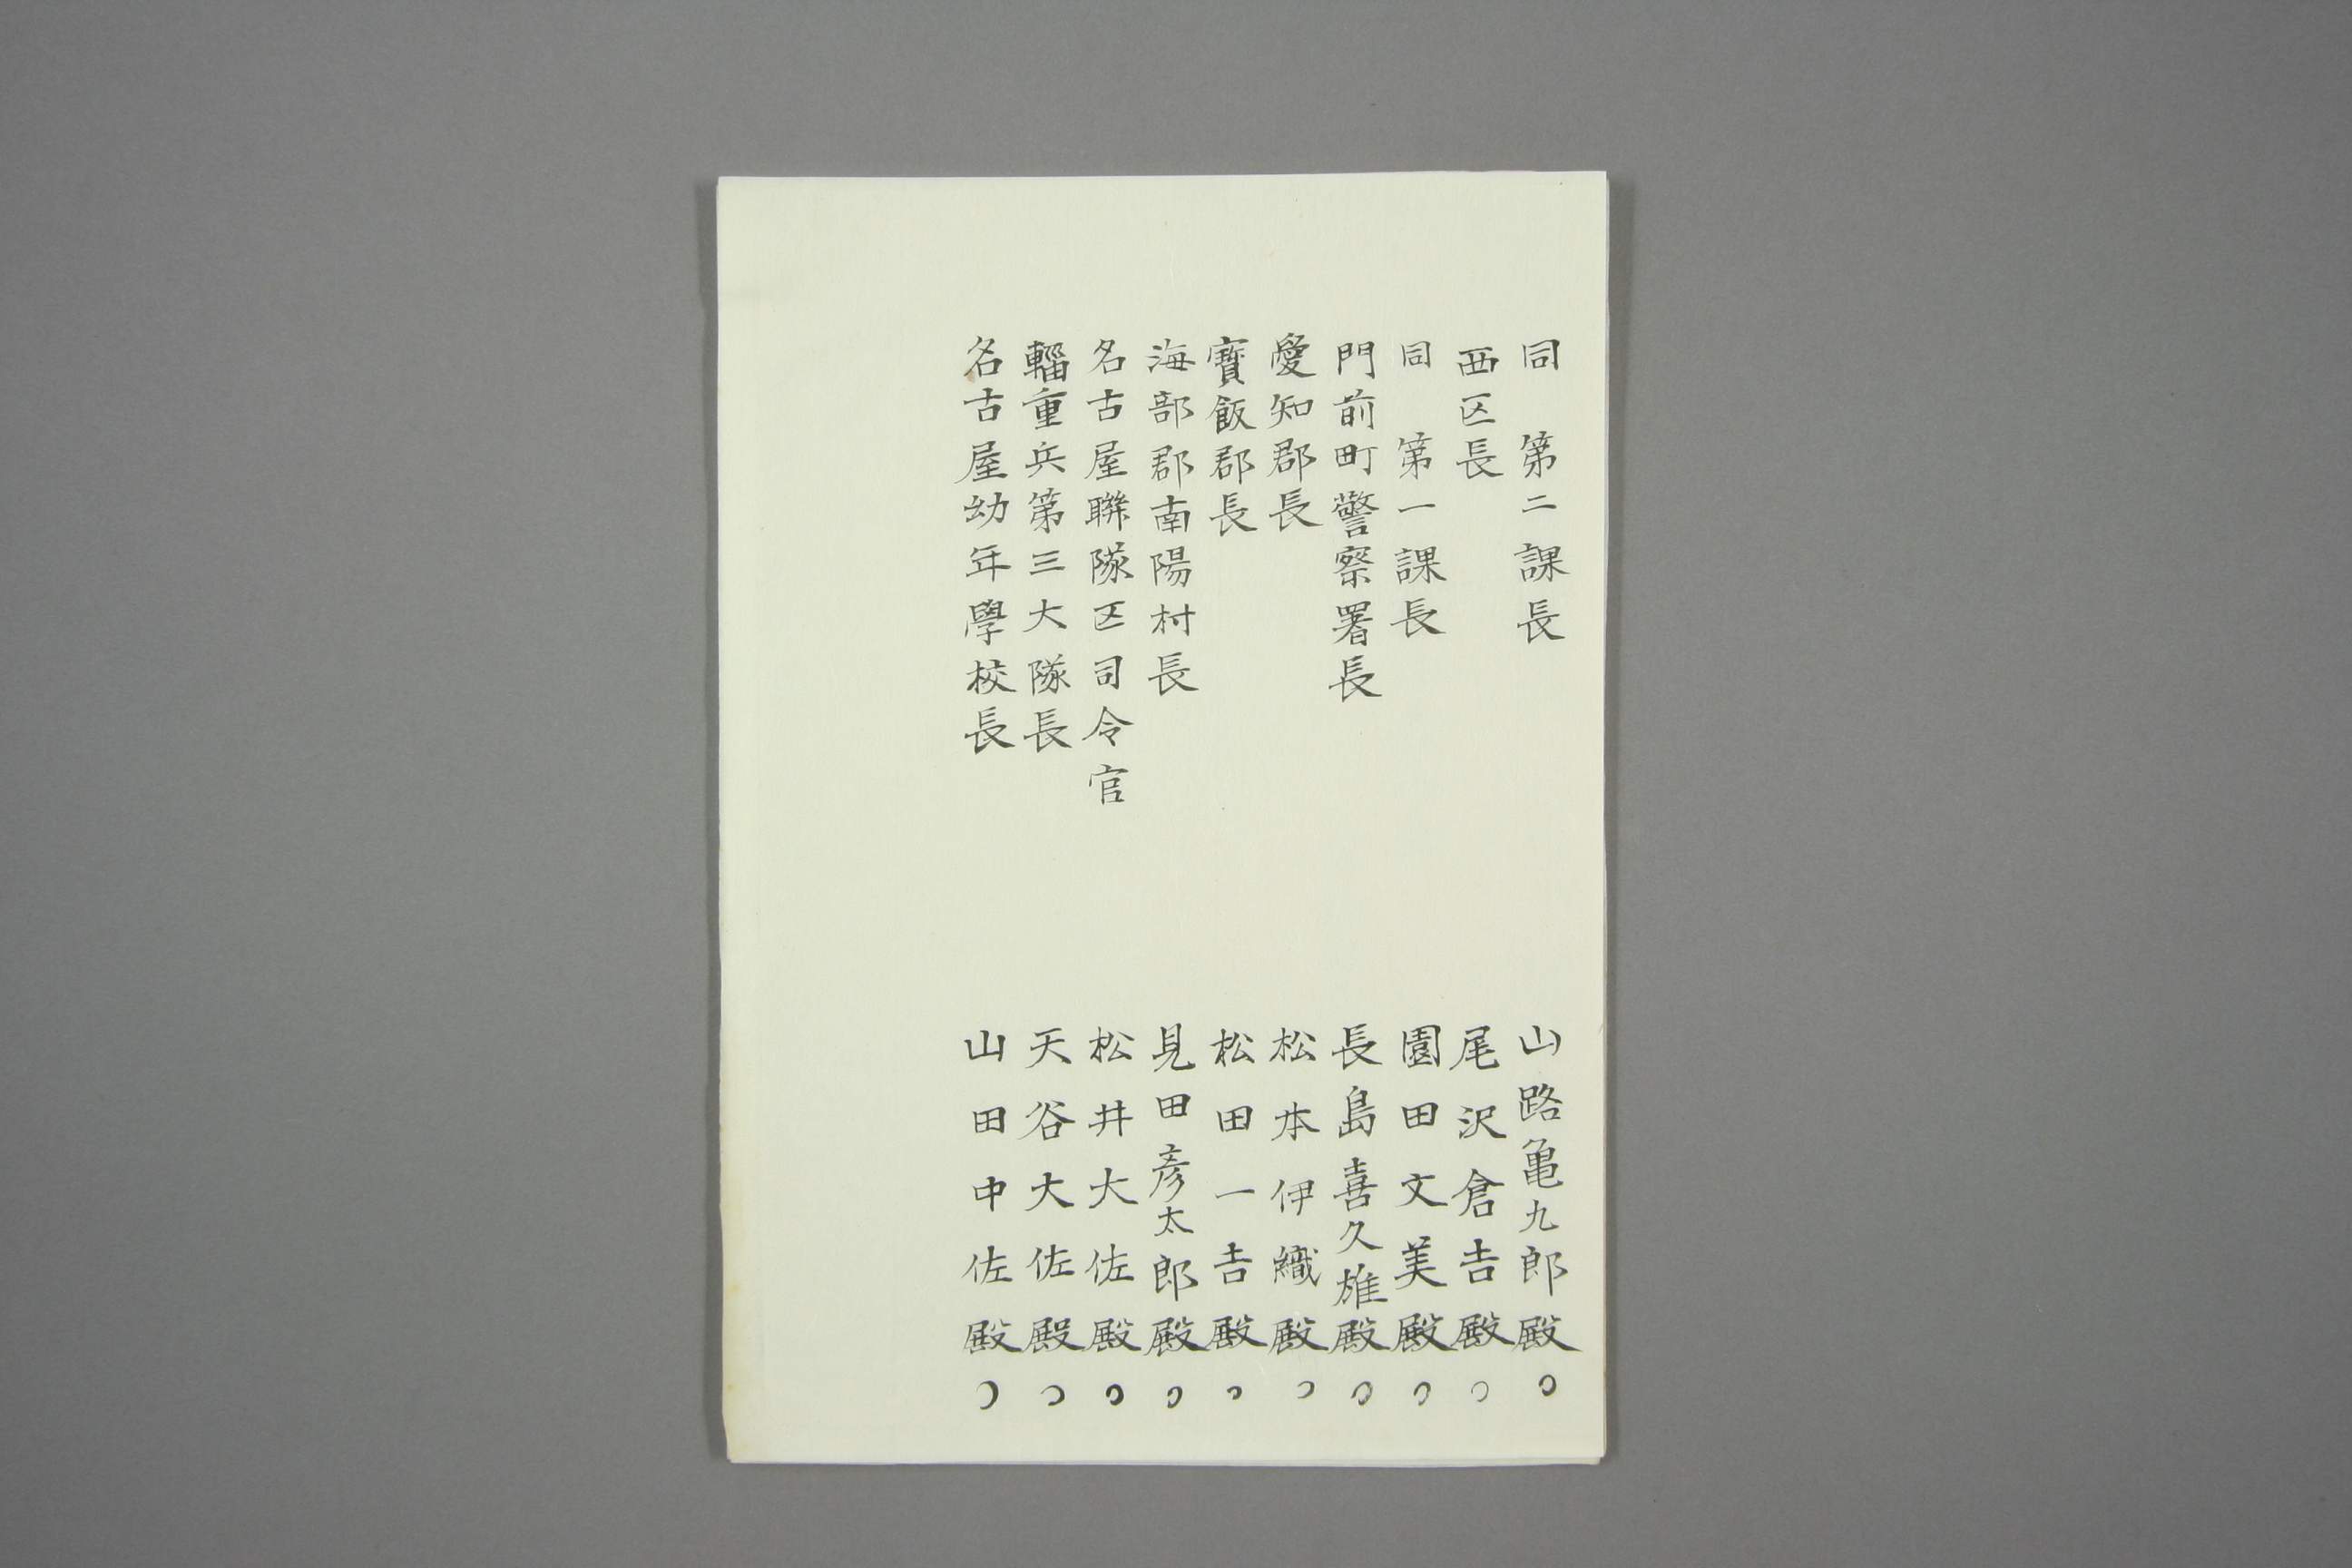 同 第二課長 山路亀九郎殿○
西区長 尾沢倉吉殿○
同 第一課長 園田文美殿○
門前町警察署長 長島喜久雄殿○
愛知郡長 松本伊織殿○
寶飯郡長 松田一吉殿○
海部郡南陽村長 見田彦太郎殿○
名古屋聯隊区司令官 松井大佐殿○
輜重兵第三大隊長 天谷大佐殿○
名古屋幼年學校長 山田中佐殿○